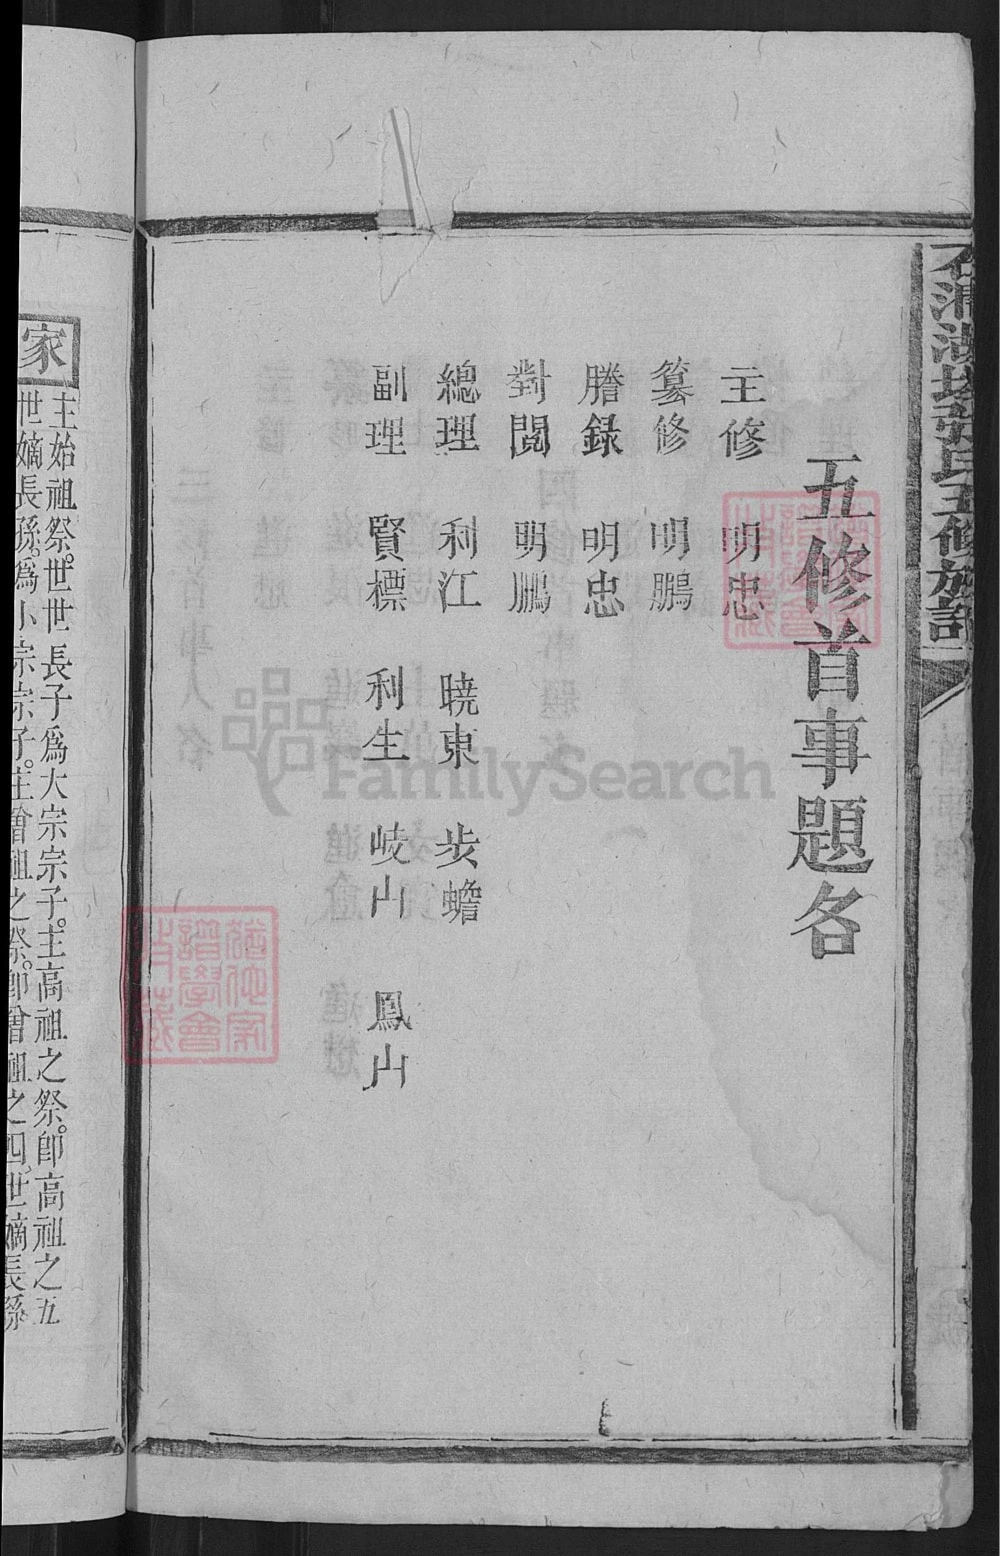 五修首事題名
主修 明忠
纂修 明鵬
謄錄 明忠
對閱 明鵬
總理 利江 曉東 步蟾
副理 賢標 利生 岐山 鳳山
家
主始祖祭。世世長子爲大宗宗子。主高祖之祭。卽高祖之五
世嫡長孫。爲小宗宗子。主曾祖之祭。卽曾祖之四世嫡長孫。
張氏五修族譜
FamilySearch